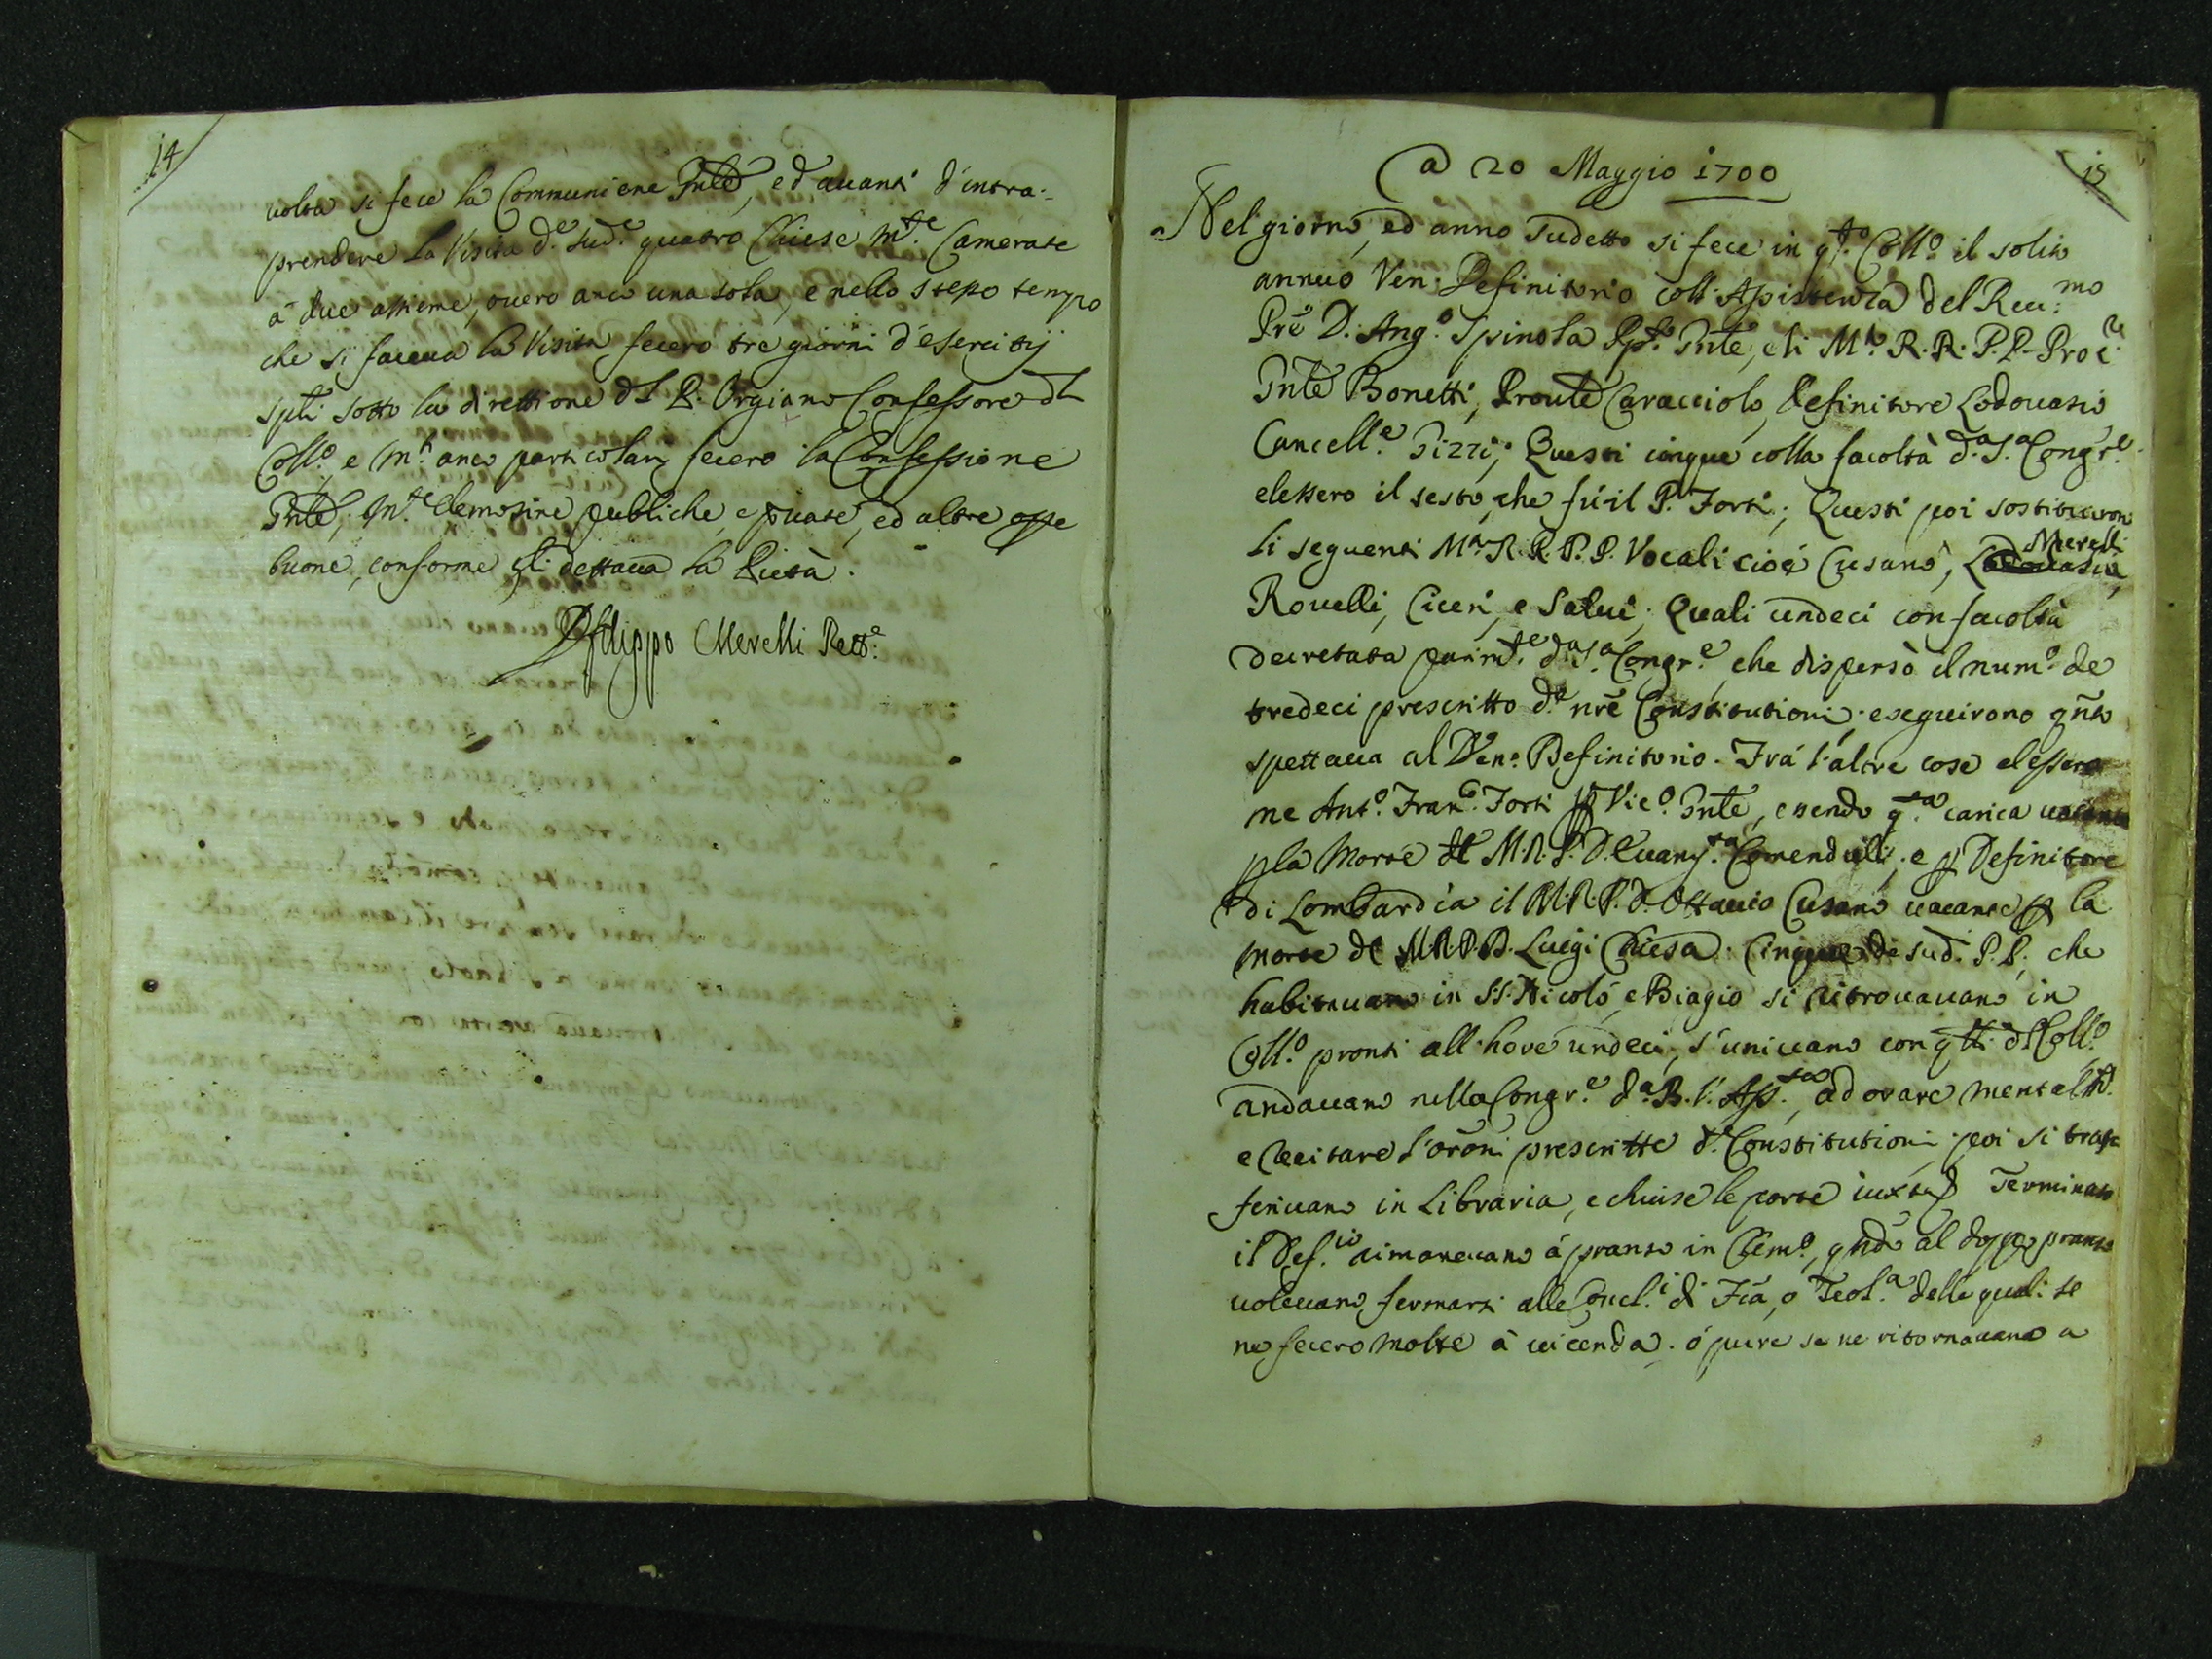 14
volta si fece la Communione Gnle, ed avanti d'intra-
prendere la Visita d.e sud.e quatro Chiese m.te Camerate
à due assieme, overo anco una sola, e nello stesso tempo
che si faceva la Visita fecero tre giorni d'esercitij
spli sotto la direttione dl P. Orgiano Confessore dl
Coll.o e m.ti anco particolari fecero la Confessione
Gnle, m.te Elemosine publiche, e private, ed altre opre
buone, conforme gli dettava la Pietà.
D Filippo Merelli Rett.e
15
a 20 Maggio 1700
Nel giorno, ed anno sudetto si fece in q.to Coll.o il solito
annuo Ven. Definitorio coll'Assistenza del Reu.mo
Pre D. Ang.o Spinola Gnle, eli M.to R.R. P.P. Proc.re
Gnle Bonetti, Caracciolo, Definitore Lodovasio
Cancell.e Pizzi; Questi cinque colla facoltà d.a S.a Congr.e
elessero il sesto, che fù il P. Forti; Questi poi sostituirono
li seguenti M.to R.R. P.P. Vocali cioè Cusano, Merelli
Rovelli, Ciceri, e Salui; Quali undeci con facoltà
decretata parim.te d.a S.a Congr.e, che dispensò il num.o de
tredeci prescritto d.e nre Constitutioni, eseguirono qnto
spettava al Ven. Definitorio. Frà l'altre cose elessero
me Ant.o Fran.o Forti p Vic.o Gnle, essendo q.ta carica vacante
p la morte dl M.R.P. D. Evang.ta Comenduli, e p Definitore
di Lombardia il M.R.P. D. Ottavio Cusano vacante p la
morte dl M.R.P.D. Luigi Chiesa. Cinque de sud. P.P. che
habitavano in SS. Nicolò, e Biagio si ritrovavano in
Coll.o pronti all'hore undeci, s'univano con qlli dl Coll.o
andavano nella Congr.e d.a B.V. Ass.ta, ad orare mentalm.te
e recitare l'oroni prescritte d.e Constitutioni, poi si trasfe
ferivano in Libraria, e chiuse le porte iuxta Terminato
il Def.io rimanevano à pranso in Clem.o, qndo al doppo pranso
volevano fermarsi alle Concl.i di Fia, o Teol.a delle quali se
ne fecero molte à vicenda. ò pure se ne ritornavano a